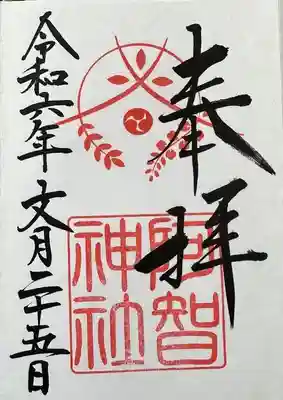 奉拝
阿智
神社
令和六年 文月二十五日